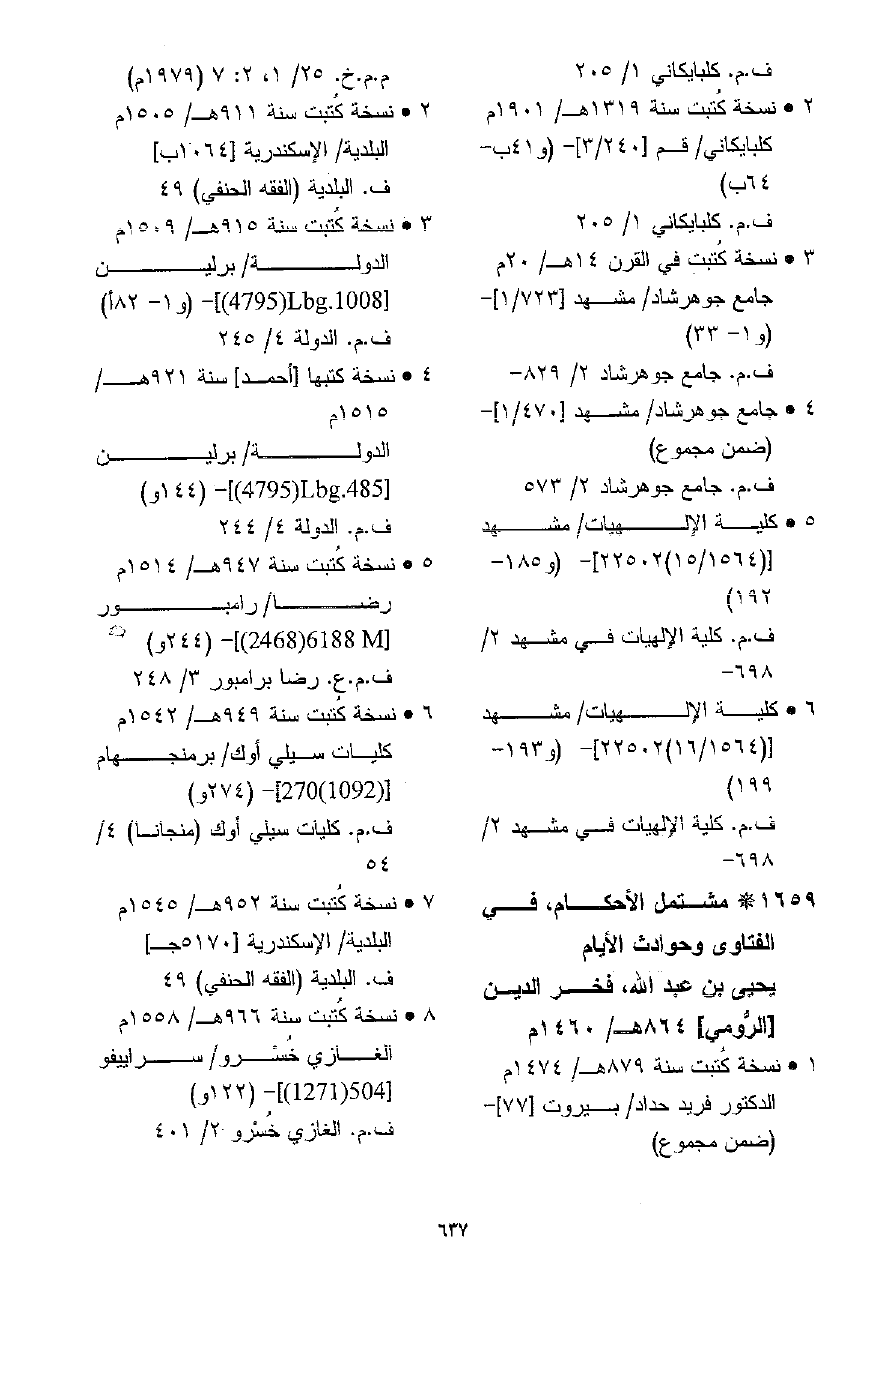 ف.م. كلبايكاني ١/ ٢٠٥
٢ • نسخة كُتبت سنة ١٣١٩هـ/ ١٩٠١م
كلبايكاني/ قم [٣/٢٤٠]- (و٤١ب-
٦٤ب)
ف.م. كلبايكاني ١/ ٢٠٥
٣ • نسخة كُتبت في القرن ١٤هـ/ ٢٠م
جامع جوهرشاد/ مشهد [١/٧٢٣]-
(و١- ٣٣)
ف.م. جامع جوهرشاد ٢/ ٨٢٩-
٤ • جامع جوهرشاد/ مشهد [١/٤٧٠]-
(ضمن مجموع)
ف.م. جامع جوهرشاد ٢/ ٥٧٣
٥ • كلية الإلهيات/ مشهد
[(١٥/١٥٦٤)٢٢٥٠٢]- (و١٨٥-
١٩٢)
ف.م. كلية الإلهيات في مشهد ٢/
٦٩٨-
٦ • كلية الإلهيات/ مشهد
[(١٦/١٥٦٤)٢٢٥٠٢]- (و١٩٣-
١٩٩)
ف.م. كلية الإلهيات في مشهد ٢/
٦٩٨-
١٦٥٩* مشتمل الأحكام، في
الفتاوى وحوادث الأيام
يحيى بن عبد الله، فخر الدين
[الرُّومي] ٨٦٤هـ/ ١٤٦٠م
١ • نسخة كُتبت سنة ٨٧٩هـ/ ١٤٧٤م
الدكتور فريد حداد/ بيروت [٧٧]-
(ضمن مجموع)
م.م.خ. ٢٥/ ١، ٢: ٧ (١٩٧٩م)
٢ • نسخة كُتبت سنة ٩١١هـ/ ١٥٠٥م
البلدية/ الإسكندرية [١٠٦٤ب]
ف. البلدية (الفقه الحنفي) ٤٩
٣ • نسخة كُتبت سنة ٩١٥هـ/ ١٥٠٩م
الدولة/ برلين
[Lbg.1008(4795)]- (و١- ٨٢أ)
ف.م. الدولة ٤/ ٢٤٥
٤ • نسخة كتبها [أحمد] سنة ٩٢١هـ/
١٥١٥م
الدولة/ برلين
[Lbg.485(4795)]- (١٤٤و)
ف.م. الدولة ٤/ ٢٤٤
٥ • نسخة كُتبت سنة ٩٤٧هـ/ ١٥١٤م
رضا/ رامبور
[6188 M(2468)]- (٢٤٤و)
ف.م.ع. رضا برامبور ٣/ ٢٤٨
٦ • نسخة كُتبت سنة ٩٤٩هـ/ ١٥٤٢م
كليات سيلي أوك/ برمنجهام
[270(1092)]- (٢٧٤و)
ف.م. كليات سيلي أوك (منجانا) ٤/
٥٤
٧ • نسخة كُتبت سنة ٩٥٢هـ/ ١٥٤٥م
البلدية/ الإسكندرية [٥١٧٠جـ]
ف. البلدية (الفقه الحنفي) ٤٩
٨ • نسخة كُتبت سنة ٩٦٦هـ/ ١٥٥٨م
الغازي خُسْرو/ سراييفو
[504(1271)]- (١٢٢و)
ف.م. الغازي خُسْرو ٢/ ٤٠١
٦٣٧